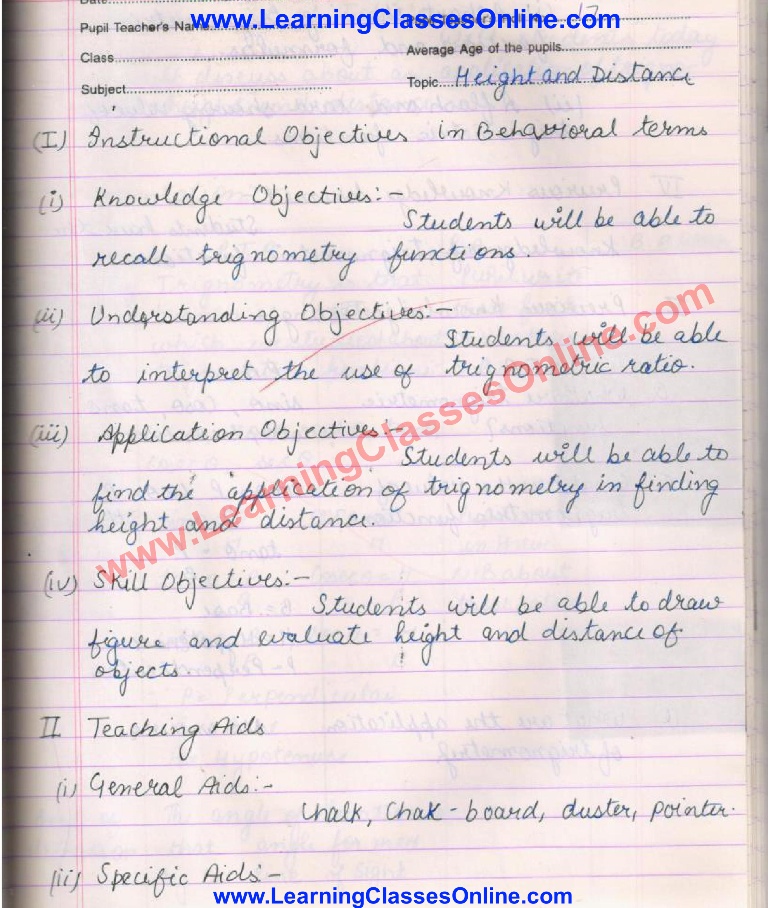 www.LearningClassesOnline.com
Date
Pupil Teacher's Name 17
Class Average Age of the pupils
Subject Topic Height and Distance
(I) Instructional Objectives in Behavioral terms
(i) Knowledge Objectives:-
Students will be able to
recall trignometry functions.
(ii) Understanding Objectives:-
Students will be able
to interpret the use of trignometric ratio.
(iii) Application Objectives:-
Students will be able to
find the application of trignometry in finding
height and distance.
(iv) Skill Objectives:-
Students will be able to draw
figure and evaluate height and distance of
objects.
II Teaching Aids
(i) General Aids:-
Chalk, Chak-board, duster, pointer.
(ii) Specific Aids:-
www.LearningClassesOnline.com
www.LearningClassesOnline.com